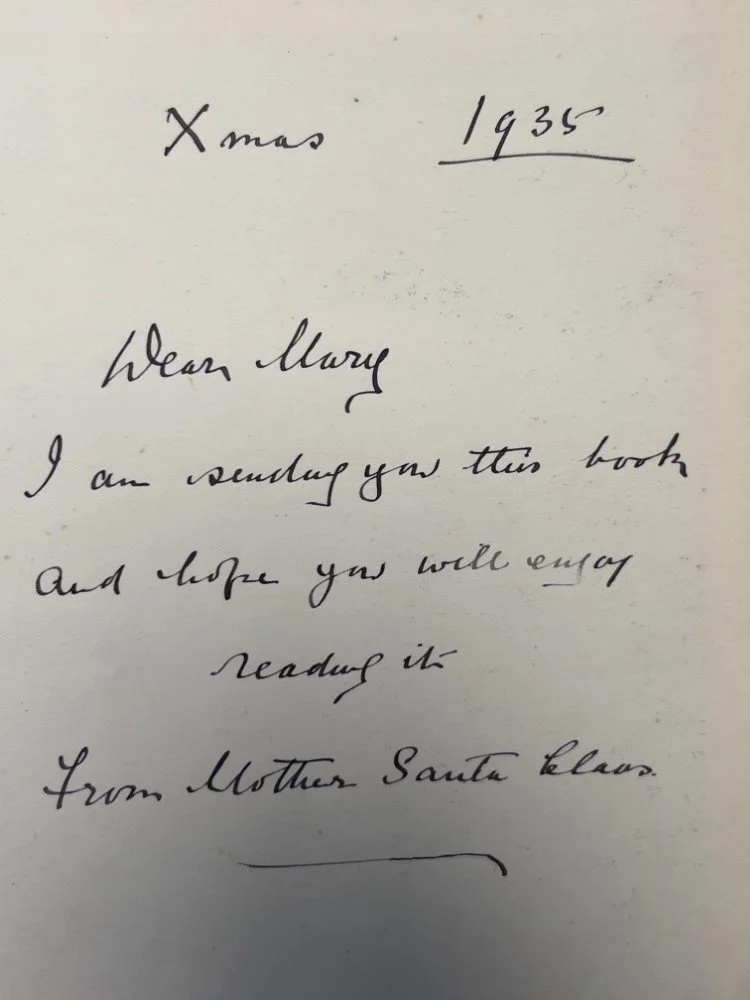 Xmas 1935
Dear Mary
I am sending you this book
and hope you will enjoy
reading it
From Mother Santa Claus.